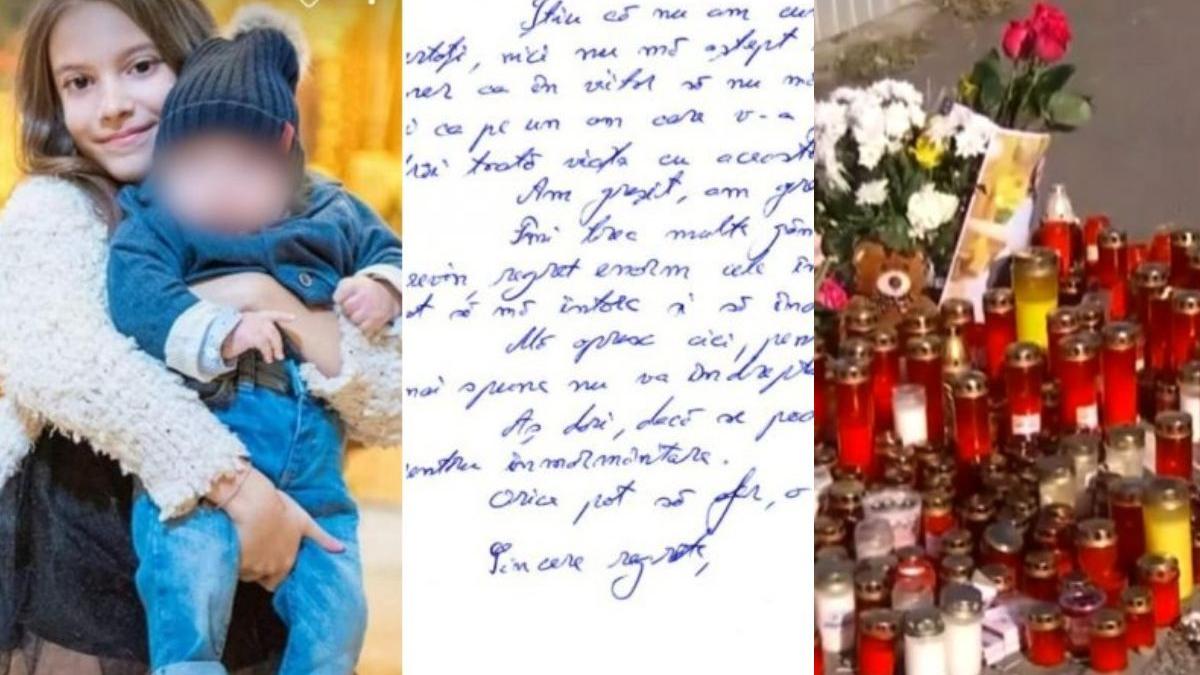 Știu că nu am cu
ertați, nici nu mă aștept
ca în viitor să nu mă
ca pe un om care v-a
toată viața cu aceast
Am greșit, am gre
Îmi trec multe gân
regret enorm cele în
să mă întorc și să în
Mă opresc aici, pen
mai spune nu va îndrepta
Aș dori, dacă se poa
entru înmormântare.
Orice pot să ofer, o
Sincere regrete,